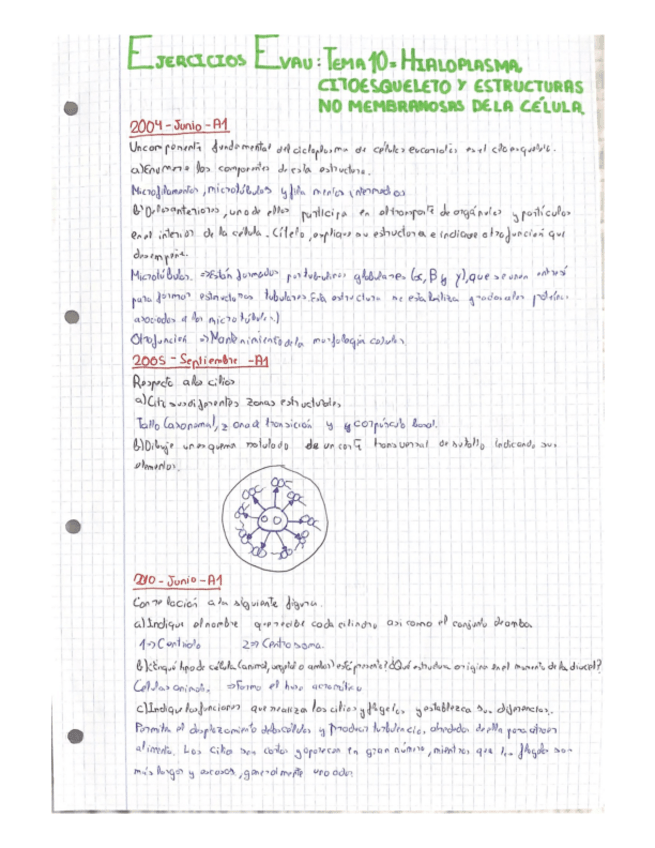 EJERCICIOS EVAU: TEMA 10= HIALOPLASMA,
CITOESQUELETO Y ESTRUCTURAS
NO MEMBRANOSAS DE LA CÉLULA
2004-Junio-A1
Un componente fundamental del citoplasma de células eucariotas es el citoesqueleto.
a) Enumere los componentes de esta estructura.
Microfilamentos, microtúbulos y filamentos intermedios
b) De los anteriores, uno de ellos participa en el transporte de orgánulos y partículas
en el interior de la célula. Cítelo, explique su estructura e indique otra función que
desempeñe.
Microtúbulos. => Están formados por tubulinas globulares (α, β y γ), que se unen entre sí
para formar estructuras tubulares. Esta estructura se estabiliza gracias a las proteínas
asociadas a los microtúbulos.)
Otra función => Mantenimiento de la morfología celular
2005-Septiembre-A1
Respecto a los cilios
a) Cite sus diferentes zonas estructurales
Tallo (axonema), zona de transición y y corpúsculo basal.
b) Dibuje un esquema rotulado de un corte transversal de su tallo indicando sus
elementos.
2010-Junio-A1
Con relación a la siguiente figura.
a) Indique el nombre que recibe cada cilindro así como el conjunto de ambos.
1=> Centriolo 2=> Centrosoma.
b) ¿En qué tipo de célula (animal, vegetal o ambas) está presente? ¿Qué estructura origina en el momento de la división?
Células animales. => Forma el huso acromático
c) Indique las funciones que realizan los cilios y flagelos y establezca sus diferencias.
Permite el desplazamiento de las células y producir turbulencias, alrededor de ella para atraer
alimento. Los cilios son cortos y aparecen en gran número, mientras que los flagelos son
más largos y escasos, generalmente uno o dos